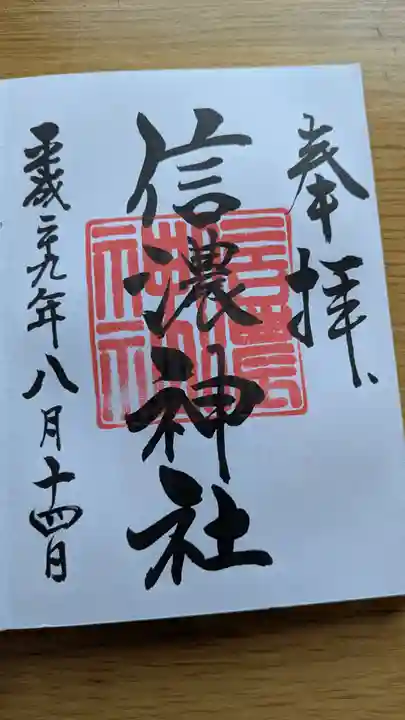 奉拝
信濃神社
平成二十九年八月十四日